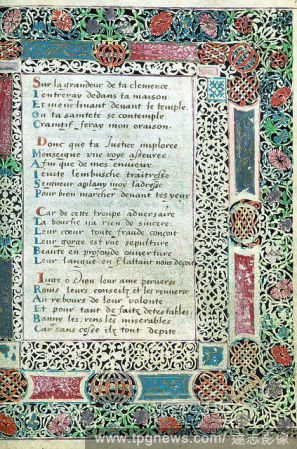 Sur la grandeur de ta clemence
I'entreray dedans ta maison
Et m'enclinant deuant le temple
Ou ta sainteté se contemple
Craintif feray mon oraison.
Donc que ta Iustice implorée
M'enseigne vne voye asseurée
Afin que de mes enuieux
I'euite lembusche traitresse
Seigneur aplany moy ladresse
Pour bien marcher deuant tes yeux
Car de cette troupe aduersaire
La bouche na rien de sincere
Leur cœur toute fraude conçoit
Leur gorge est vne sepulture
Beante en profonde ouuerture
Leur langue en flattant nous deçoit
Iuge ô Dieu leur ame peruerse
Romps leurs conseils et les renuerse
Au rebours de leur volonte
Et pour tant de faits detestables
Banny les, rens les miserables
Car sans cesse ilz tont depité
www.tpgnews.com/ 達志影像